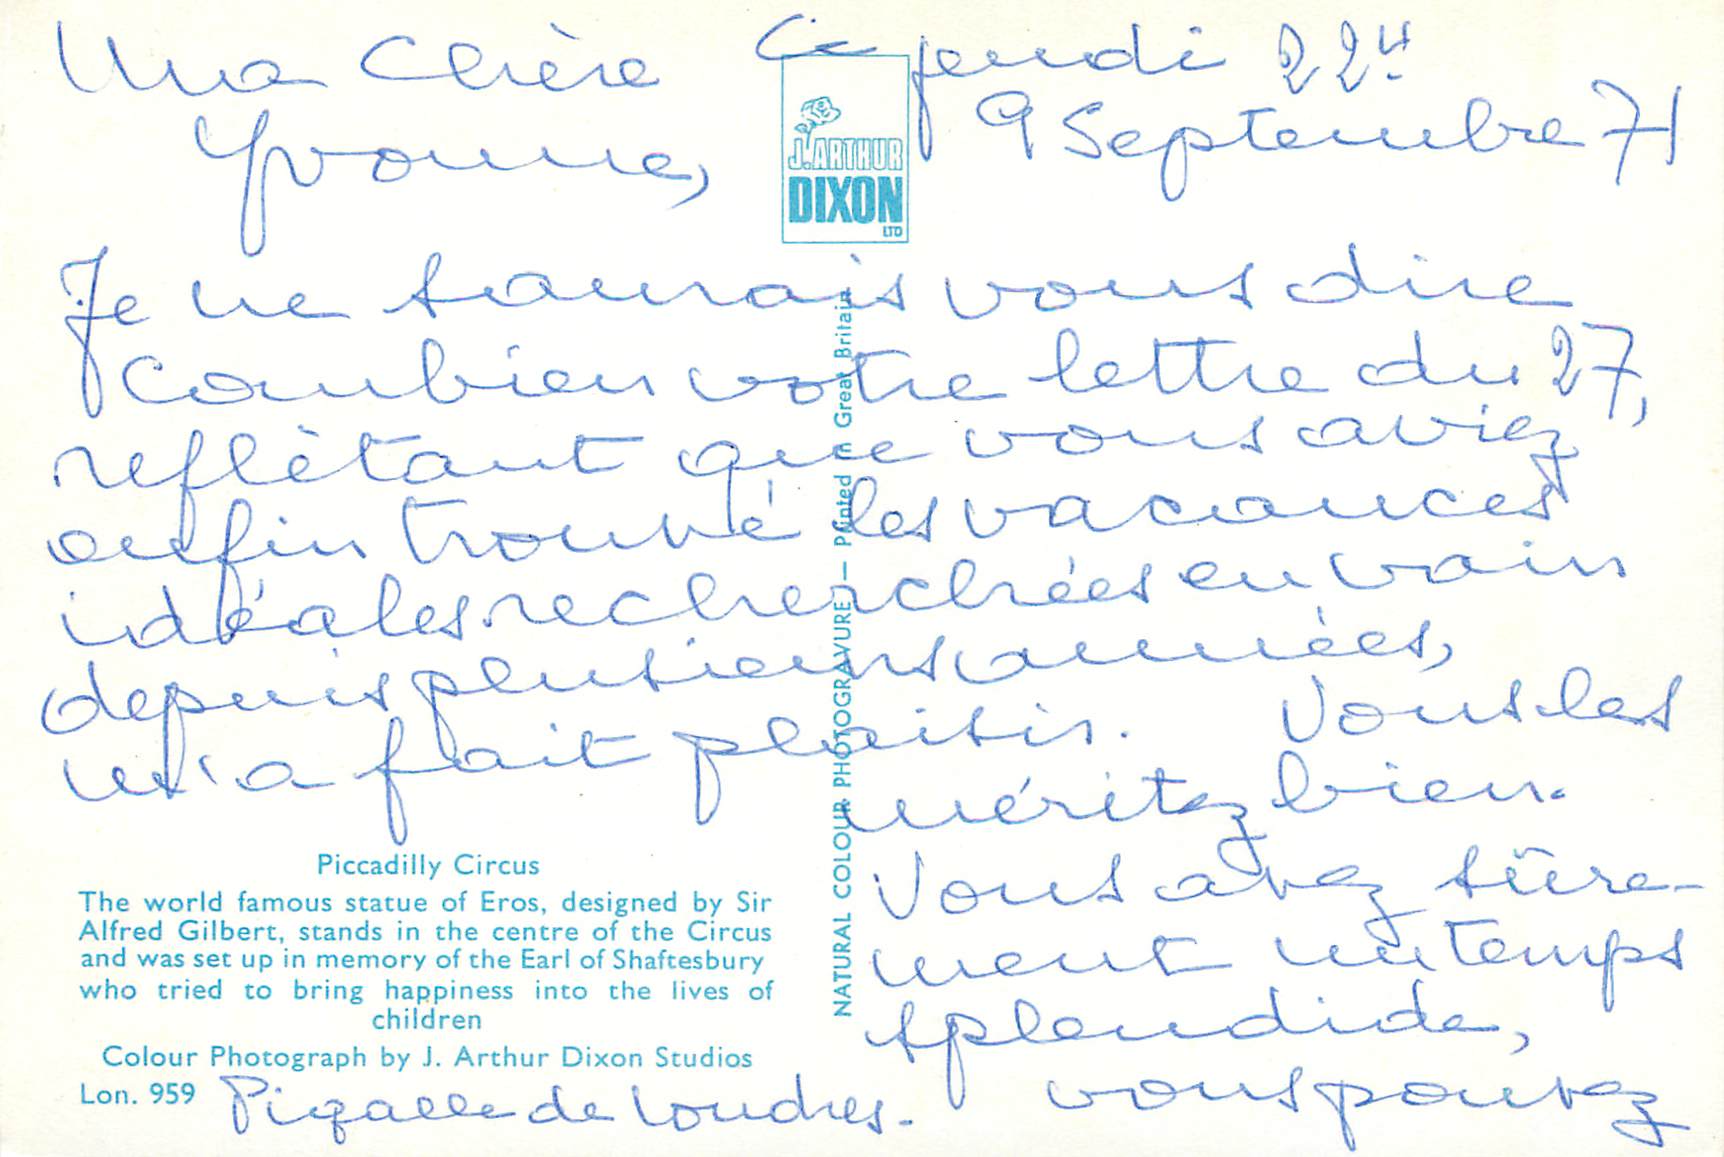 Ma Chère Ce jeudi 22H
Yvonne, 9 Septembre 71
J. ARTHUR
DIXON
LTD
Je ne saurais vous dire
combien votre lettre du 27,
reflètant que vous aviez
enfin trouvé les vacances
idéales recherchées en vain
depuis plusieurs années,
m'a fait plaisir. Vous les
méritez bien.
Vous avez sûre-
ment un temps
splendide,
vous pouvez
Piccadilly Circus
The world famous statue of Eros, designed by Sir
Alfred Gilbert, stands in the centre of the Circus
and was set up in memory of the Earl of Shaftesbury
who tried to bring happiness into the lives of
children
Colour Photograph by J. Arthur Dixon Studios
Lon. 959
Pigalle de Londres.
NATURAL COLOUR PHOTOGRAVURE — Printed in Great Britain